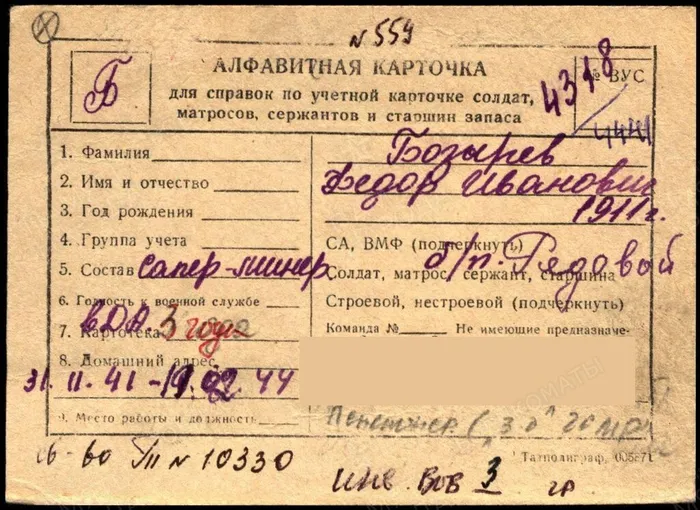 № 559
Б
АЛФАВИТНАЯ КАРТОЧКА
для справок по учетной карточке солдат,
матросов, сержантов и старшин запаса
№ ВУС
4318
1. Фамилия
Бозырев
2. Имя и отчество
Федор Иванович
3. Год рождения
1911 г.
4. Группа учета
СА, ВМФ (подчеркнуть)
5. Состав сапер-минер
б/п. Рядовой
Солдат, матрос, сержант, старшина
6. Годность к военной службе
Строевой, нестроевой (подчеркнуть)
7. Картотека
3 года
Команда № Не имеющие предназначе-
8. Домашний адрес
31.11.41 - 19.02.44
9. Место работы и должность
№ 10330
Татполиграф,
инв. ВОВ 3 гр